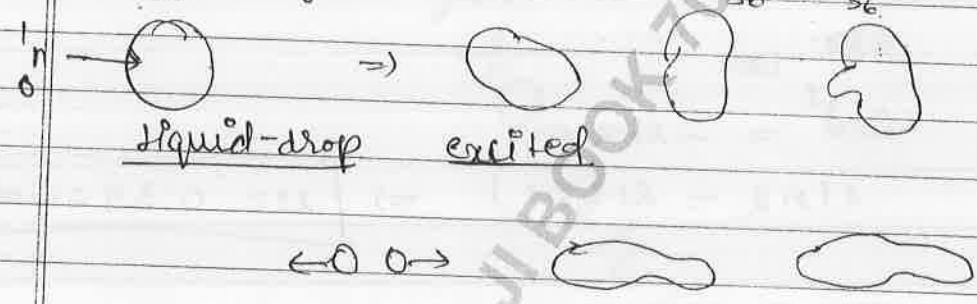 ¹₀n → ⇒
liquid-drop excited
JI BOOK